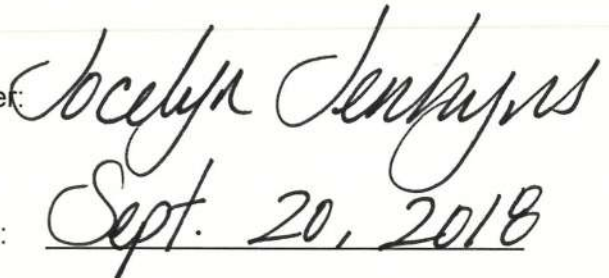 er: Jocelyn Jenkyns
: Sept. 20, 2018